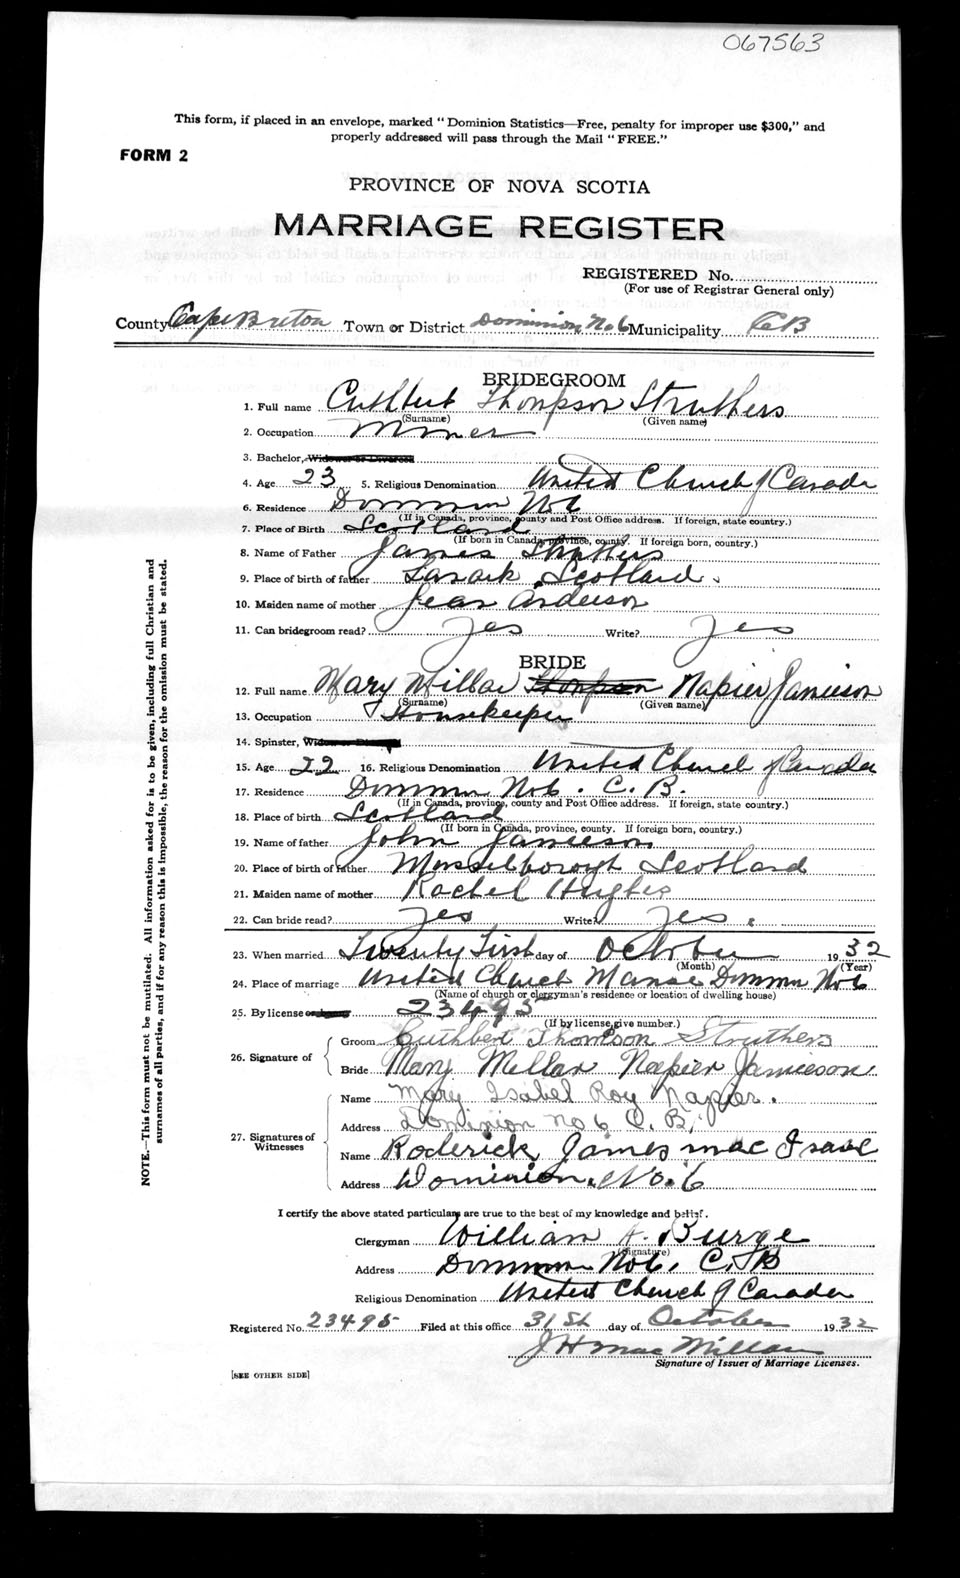 067563
This form, if placed in an envelope, marked "Dominion Statistics—Free, penalty for improper use $300," and
properly addressed will pass through the Mail "FREE."
FORM 2
PROVINCE OF NOVA SCOTIA
MARRIAGE REGISTER
REGISTERED No.
(For use of Registrar General only)
County Cape Breton Town or District Dominion No 6 Municipality CB
BRIDEGROOM
1. Full name Cuthbert Thompson Struthers
(Surname) (Given name)
2. Occupation Miner
3. Bachelor, Widower or Divorced
4. Age 23 5. Religious Denomination United Church of Canada
6. Residence Dominion No 6
(If in Canada, province, county and Post Office address. If foreign, state country.)
7. Place of Birth Scotland
(If born in Canada, province, county. If foreign born, country.)
8. Name of Father James Struthers
9. Place of birth of father Lanark Scotland.
10. Maiden name of mother Jean Anderson
11. Can bridegroom read? Yes Write? Yes
BRIDE
12. Full name Mary Millar Thompson Napier Jamieson
(Surname) (Given name)
13. Occupation Housekeeper
14. Spinster, Widow or Divorced
15. Age 22 16. Religious Denomination United Church of Canada
17. Residence Dominion No 6. C. B.
(If in Canada, province, county and Post Office address. If foreign, state country.)
18. Place of birth Scotland
(If born in Canada, province, county. If foreign born, country.)
19. Name of father John Jamieson
20. Place of birth of father Musselborough Scotland
21. Maiden name of mother Rachel Hughes
22. Can bride read? Yes Write? Yes.
23. When married Twenty First day of October 1932
(Month) (Year)
24. Place of marriage United Church Manse Dominion No 6
(Name of church or clergyman's residence or location of dwelling house)
25. By license or banns 23495
(If by license, give number.)
26. Signature of Groom Cuthbert Thomson Struthers
Bride Mary Millar Napier Jamieson
27. Signatures of Witnesses Name Mary Isabel Roy Napier.
Address Dominion No 6 C. B.
Name Roderick James Mac Isaac
Address Dominion, No. 6
NOTE.—This form must not be mutilated. All information asked for is to be given, including full Christian and
surnames of all parties, and if for any reason this is impossible, the reason for the omission must be stated.
I certify the above stated particulars are true to the best of my knowledge and belief.
Clergyman William A. Burge
(Signature)
Address Dominion No 6. C. B
Religious Denomination United Church of Canada
Registered No. 23495 Filed at this office 31st day of October 1932
J H MacMillan
Signature of Issuer of Marriage Licenses.
[SEE OTHER SIDE]